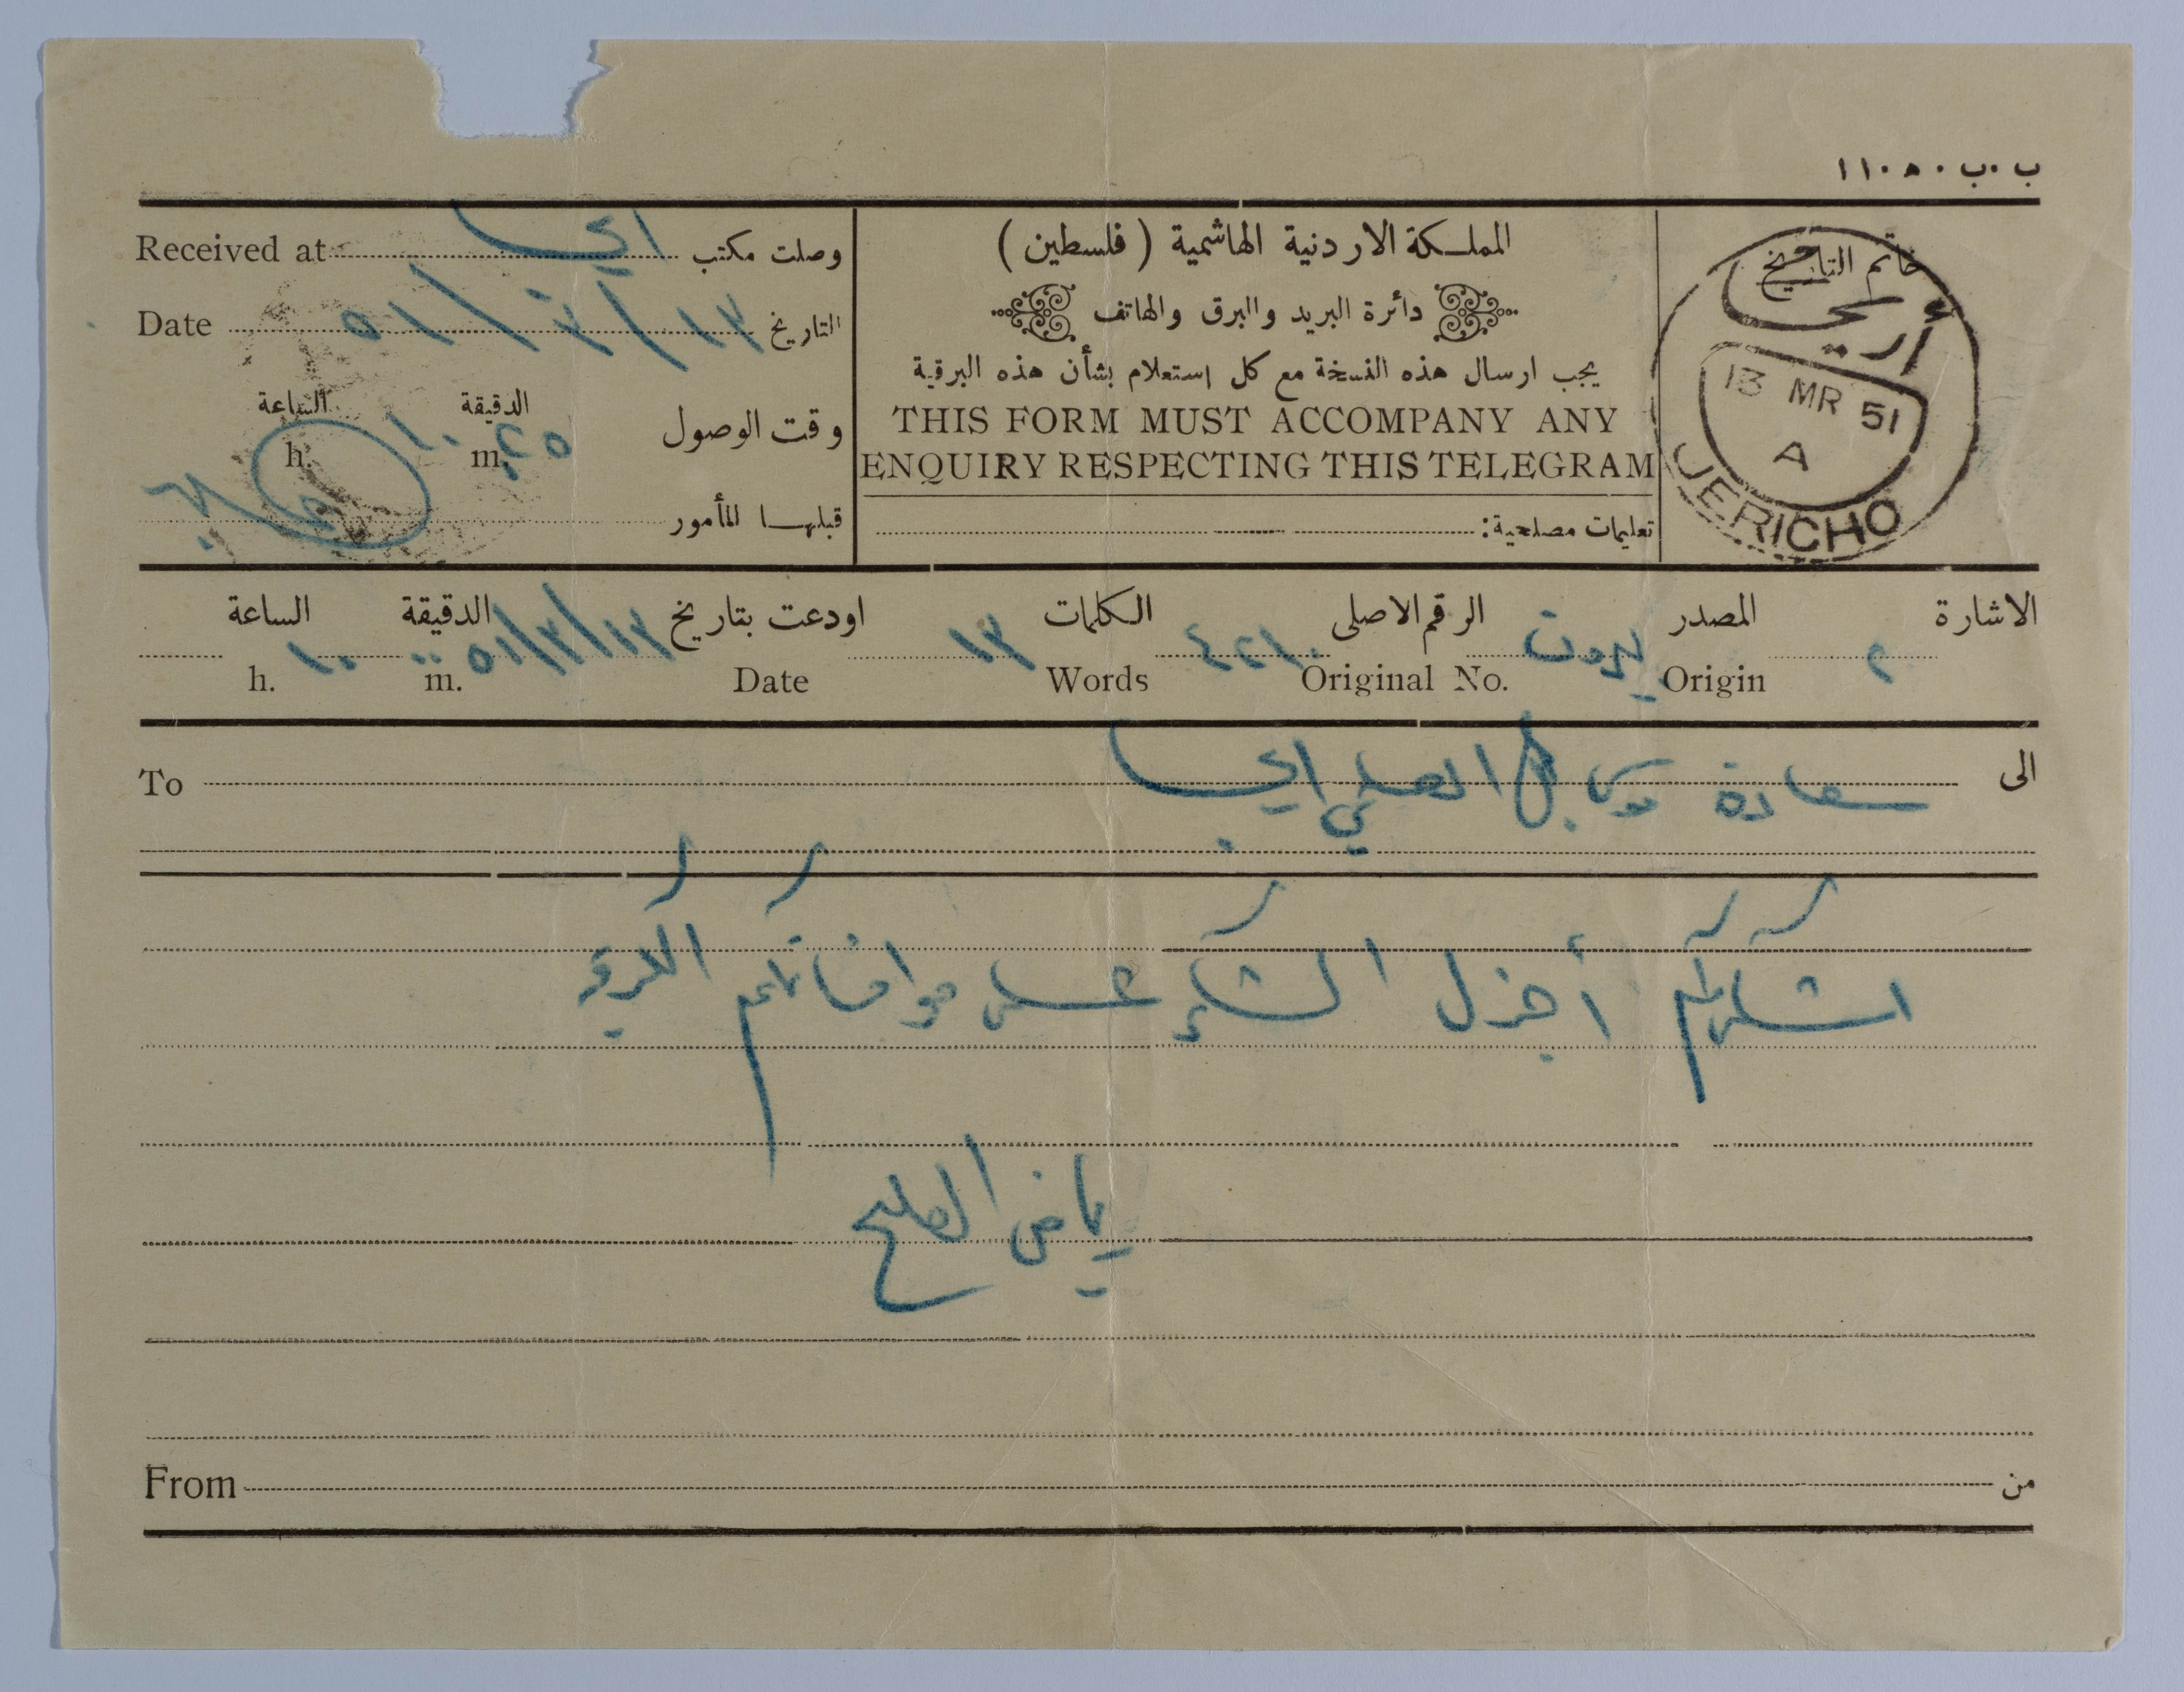 ب.ب ١١٠٥٠
المملكة الاردنية الهاشمية ( فلسطين )
دائرة البريد والبرق والهاتف
يجب ارسال هذه النسخة مع كل استعلام بشأن هذه البرقية
THIS FORM MUST ACCOMPANY ANY
ENQUIRY RESPECTING THIS TELEGRAM
تعليمات مصلحية:
خاتم التاريخ
أريحا
13 MR 51
A
JERICHO
Received at وصلت مكتب
Date التاريخ ١٣/٣/٥١
الساعة الدقيقة
h. ١٠ m. ٢٥ وقت الوصول
قبلها المأمور
الاشارة المصدر بيروت الرقم الاصلى الكلمات ١٣ اودعت بتاريخ ١٣/٣/٥١ الدقيقة ٠٠ الساعة ١٠
h. m. Date Words Original No. Origin
To الى سعادة موسى بك العلمي اريحا
اشكركم أجزل الشكر على موافاتكم الكريمة
رياض الصلح
From من